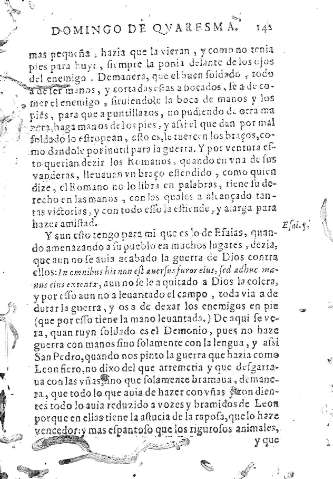 DOMINGO DE QVARESMA. 142
mas pequeña, hazia que la vieran, y como no tenia
pies para huyr, siempre la ponia delante de los ojos
del enemigo. Demanera, que el buen soldado, todo
a de ser manos, y cortadas estas a bocados, se a de co-
mer el enemigo, siruiendole la boca de manos y los
pies, para que a puntillazos, no pudiendo de otra ma
nera, haga manos de los pies, y assi el que dan por mal
soldado lo estropean, esto es, le tuercen los braços, co-
mo dandole por inutil para la guerra. Y por ventura es-
to querian dezir los Romanos, quando en vna de sus
vanderas, lleuauan vn braço estendido, como quien
dize, el Romano no lo libra en palabras, tiene su de-
recho en las manos, con los quales a alcançado tan-
tas victorias, y con todo esso la estiende, y alarga para
hazer amistad.
Y aun esto tengo para mi que es lo de Esaias, quan-
do amenazando a su pueblo en muchos lugares, dezia,
que aun no se auia acabado la guerra de Dios contra
ellos: In omnibus his non est auersus furor eius, sed adhuc ma-
nus eius extenta, aun no se le a quitado a Dios la colera,
y por esso aun no a leuantado el campo, toda via a de
durar la guerra, y os a de dexar los enemigos en pie
(que por esso tiene la mano leuantada.) De aqui se ve-
ra, quan ruyn soldado es el Demonio, pues no haze
guerra con manos sino solamente con la lengua, y assi
San Pedro, quando nos pinto la guerra que hazia como
Leon fiero, no dixo del que arremetia y que desgarra-
ua con las vñas, sino que solamente bramaua, demane-
ra, que todo lo que auia de hazer con vñas con dien-
tes todo lo auia reduzido a vozes y bramidos de Leon
porque en ellas tiene la astucia de la raposa, que lo haze
vencedor: y mas espantoso que los rigurosos animales,
y que
Esai. 5.